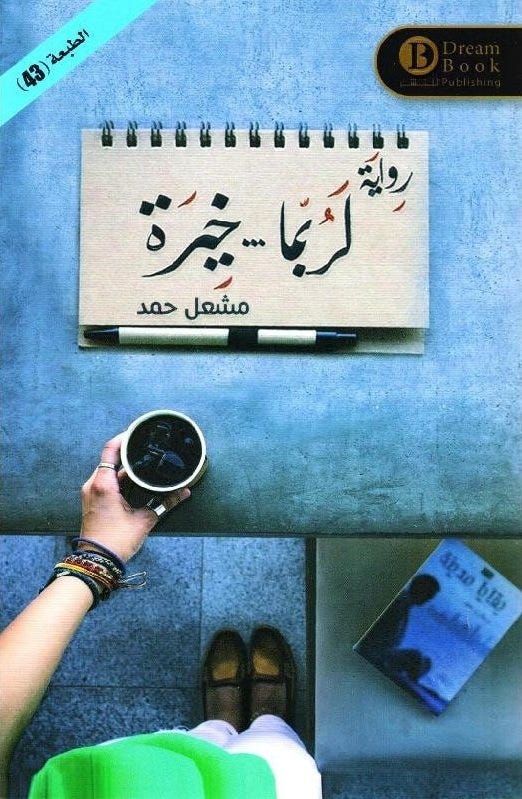 الطبعة (43)
B Dream
Book
Publishing
رِوايَة
لَرُبَّما ... خِيَرَة
مشعل حمد